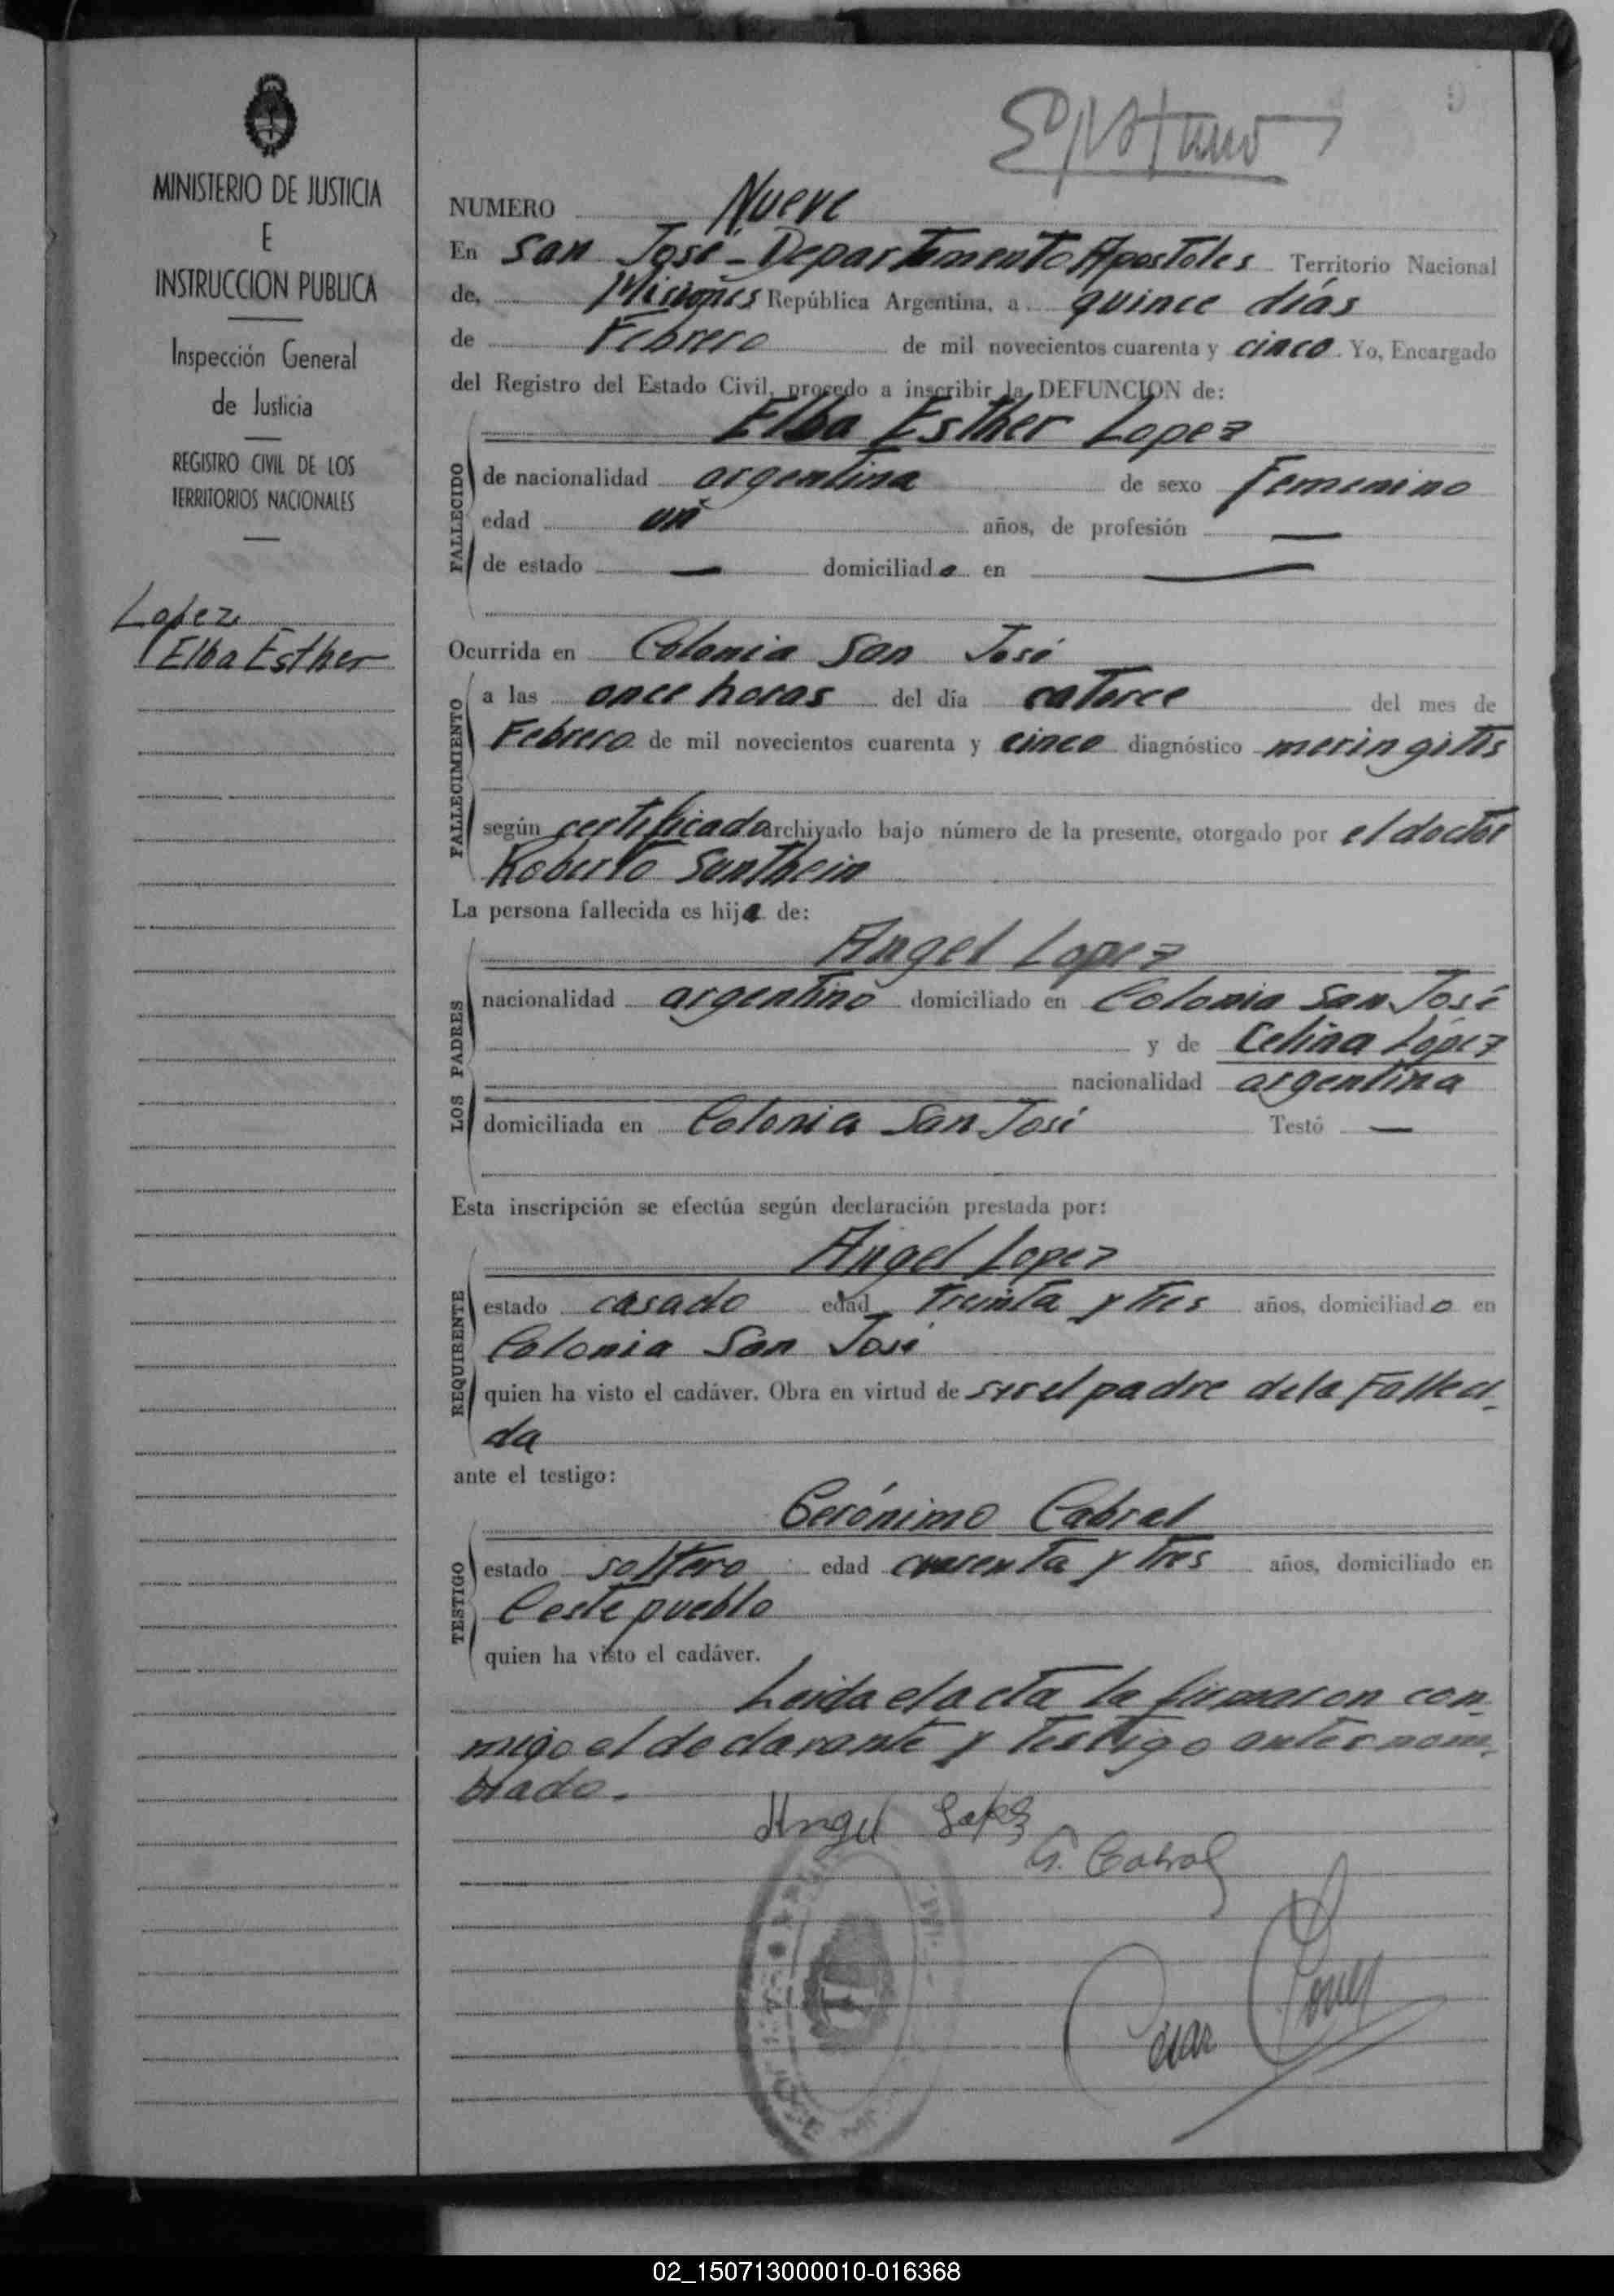 MINISTERIO DE JUSTICIA
E
INSTRUCCION PUBLICA
Inspección General
de Justicia
REGISTRO CIVIL DE LOS
TERRITORIOS NACIONALES
Lopez
Elba Esther
NUMERO Nueve
En San José - Departamento Apostoles Territorio Nacional
de, Misiones República Argentina, a quince días
de Febrero de mil novecientos cuarenta y cinco. Yo, Encargado
del Registro del Estado Civil, procedo a inscribir la DEFUNCION de:
Elba Esther Lopez
FALLECIDO
de nacionalidad argentina de sexo Femenino
edad un años, de profesión —
de estado — domiciliado en —
Ocurrida en Colonia San José
FALLECIMIENTO
a las once horas del día catorce del mes de
Febrero de mil novecientos cuarenta y cinco diagnóstico meringitis
según certificado archivado bajo número de la presente, otorgado por el doctor
Roberto
La persona fallecida es hija de:
Angel Lopez
LOS PADRES
nacionalidad argentino domiciliado en Colonia San José
y de Celina López
nacionalidad argentina
domiciliada en Colonia San José Testó —
Esta inscripción se efectúa según declaración prestada por:
Angel Lopez
REQUIRENTE
estado casado edad treinta y tres años, domiciliado en
Colonia San José
quien ha visto el cadáver. Obra en virtud de ser el padre de la Falleci-
da
ante el testigo:
Gerónimo Cabral
TESTIGO
estado soltero edad y tres años, domiciliado en
este pueblo
quien ha visto el cadáver.
Leida el acta la firmaron con-
migo el declarante y testigo antes nom-
brado.
Angel Lopez
G. Cabral
02_150713000010-016368